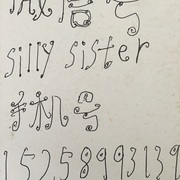 微信号
silly sister
手机号
15258993139